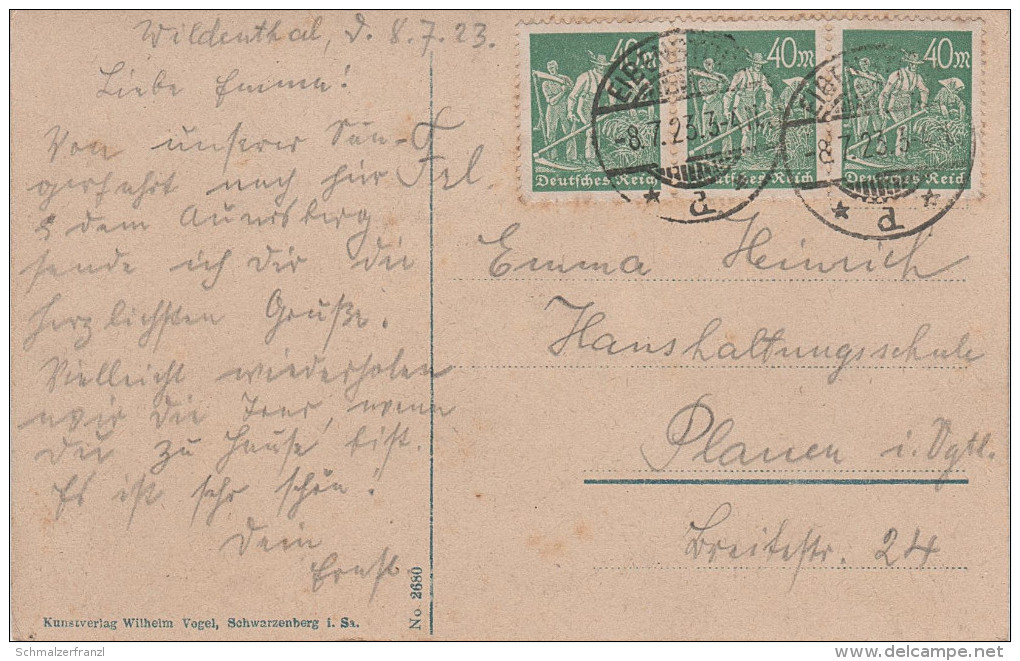 Wildenthal, d. 8.7.23.
Liebe Emma!
Von unserer Sän-
gerfahrt nach hier
& dem Auersberg
sende ich Dir die
herzlichsten Grüße.
Vielleicht wiederholen
wir die Tour, wenn
Du zu Hause bist.
Es ist sehr schön!
Dein
Ernst.
40M 40M 40M
Deutsches Reich Deutsches Reich Deutsches Reich
-8.7.23.3-4
-8.7.23.3-4
Frl.
Emma Heinrich
Haushaltungsschule
Plauen i. Vgtl.
Breitestr. 24
No. 2680
Kunstverlag Wilhelm Vogel, Schwarzenberg i. Sa.
Schmalzerfranzl
delcampe.net